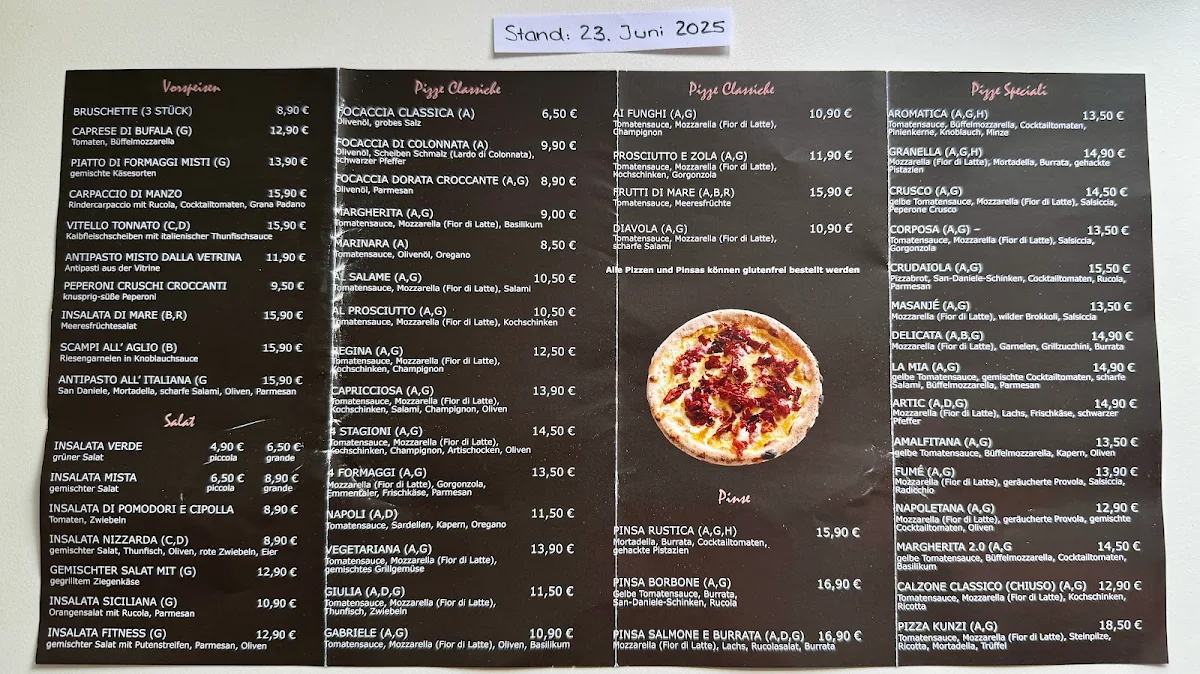 Stand: 23. Juni 2025
Vorspeisen
BRUSCHETTE (3 STÜCK) 8,90 €
CAPRESE DI BUFALA (G) 12,90 €
Tomaten, Büffelmozzarella
PIATTO DI FORMAGGI MISTI (G) 13,90 €
gemischte Käsesorten
CARPACCIO DI MANZO 15,90 €
Rindercarpaccio mit Rucola, Cocktailtomaten, Grana Padano
VITELLO TONNATO (C,D) 15,90 €
Kalbfleischscheiben mit italienischer Thunfischsauce
ANTIPASTO MISTO DALLA VETRINA 11,90 €
Antipasti aus der Vitrine
PEPERONI CRUSCHI CROCCANTI 9,50 €
knusprig-süße Peperoni
INSALATA DI MARE (B,R) 15,90 €
Meeresfrüchtesalat
SCAMPI ALL' AGLIO (B) 15,90 €
Riesengarnelen in Knoblauchsauce
ANTIPASTO ALL' ITALIANA (G 15,90 €
San Daniele, Mortadella, scharfe Salami, Oliven, Parmesan
Salat
INSALATA VERDE 4,90 € 6,50 €
grüner Salat piccola grande
INSALATA MISTA 6,50 € 8,90 €
gemischter Salat piccola grande
INSALATA DI POMODORI E CIPOLLA 8,90 €
Tomaten, Zwiebeln
INSALATA NIZZARDA (C,D) 8,90 €
gemischter Salat, Thunfisch, Oliven, rote Zwiebeln, Eier
GEMISCHTER SALAT MIT (G) 12,90 €
gegrilltem Ziegenkäse
INSALATA SICILIANA (G) 10,90 €
Orangensalat mit Rucola, Parmesan
INSALATA FITNESS (G) 12,90 €
gemischter Salat mit Putenstreifen, Parmesan, Oliven
Pizze Classiche
FOCACCIA CLASSICA (A) 6,50 €
Olivenöl, grobes Salz
FOCACCIA DI COLONNATA (A) 9,90 €
Olivenöl, Scheiben Schmalz (Lardo di Colonnata),
schwarzer Pfeffer
FOCACCIA DORATA CROCCANTE (A,G) 8,90 €
Olivenöl, Parmesan
MARGHERITA (A,G) 9,00 €
Tomatensauce, Mozzarella (Fior di Latte), Basilikum
MARINARA (A) 8,50 €
Tomatensauce, Olivenöl, Oregano
AL SALAME (A,G) 10,50 €
Tomatensauce, Mozzarella (Fior di Latte), Salami
AL PROSCIUTTO (A,G) 10,50 €
Tomatensauce, Mozzarella (Fior di Latte), Kochschinken
REGINA (A,G) 12,50 €
Tomatensauce, Mozzarella (Fior di Latte),
Kochschinken, Champignon
CAPRICCIOSA (A,G) 13,90 €
Tomatensauce, Mozzarella (Fior di Latte),
Kochschinken, Salami, Champignon, Oliven
4 STAGIONI (A,G) 14,50 €
Tomatensauce, Mozzarella (Fior di Latte),
Kochschinken, Champignon, Artischocken, Oliven
4 FORMAGGI (A,G) 13,50 €
Mozzarella (Fior di Latte), Gorgonzola,
Emmentaler, Frischkäse, Parmesan
NAPOLI (A,D) 11,50 €
Tomatensauce, Sardellen, Kapern, Oregano
VEGETARIANA (A,G) 13,90 €
Tomatensauce, Mozzarella (Fior di Latte),
gemischtes Grillgemüse
GIULIA (A,D,G) 11,50 €
Tomatensauce, Mozzarella (Fior di Latte),
Thunfisch, Zwiebeln
GABRIELE (A,G) 10,90 €
Tomatensauce, Mozzarella (Fior di Latte), Oliven, Basilikum
Pizze Classiche
AI FUNGHI (A,G) 10,90 €
Tomatensauce, Mozzarella (Fior di Latte),
Champignon
PROSCIUTTO E ZOLA (A,G) 11,90 €
Tomatensauce, Mozzarella (Fior di Latte),
Kochschinken, Gorgonzola
FRUTTI DI MARE (A,B,R) 15,90 €
Tomatensauce, Meeresfrüchte
DIAVOLA (A,G) 10,90 €
Tomatensauce, Mozzarella (Fior di Latte),
scharfe Salami
Alle Pizzen und Pinsas können glutenfrei bestellt werden
Pinse
PINSA RUSTICA (A,G,H) 15,90 €
Mortadella, Burrata, Cocktailtomaten,
gehackte Pistazien
PINSA BORBONE (A,G) 16,90 €
Gelbe Tomatensauce, Burrata,
San-Daniele-Schinken, Rucola
PINSA SALMONE E BURRATA (A,D,G) 16,90 €
Mozzarella (Fior di Latte), Lachs, Rucolasalat, Burrata
Pizze Speciali
AROMATICA (A,G,H) 13,50 €
Tomatensauce, Büffelmozzarella, Cocktailtomaten,
Pinienkerne, Knoblauch, Minze
GRANELLA (A,G,H) 14,90 €
Mozzarella (Fior di Latte), Mortadella, Burrata, gehackte
Pistazien
CRUSCO (A,G) 14,50 €
gelbe Tomatensauce, Mozzarella (Fior di Latte), Salsiccia,
Peperone Crusco
CORPOSA (A,G) – 13,50 €
Tomatensauce, Mozzarella (Fior di Latte), Salsiccia,
Gorgonzola
CRUDAIOLA (A,G) 15,50 €
Pizzabrot, San-Daniele-Schinken, Cocktailtomaten, Rucola,
Parmesan
MASANJÉ (A,G) 13,50 €
Mozzarella (Fior di Latte), wilder Brokkoli, Salsiccia
DELICATA (A,B,G) 14,90 €
Mozzarella (Fior di Latte), Garnelen, Grillzucchini, Burrata
LA MIA (A,G) 14,90 €
gelbe Tomatensauce, gemischte Cocktailtomaten, scharfe
Salami, Büffelmozzarella, Parmesan
ARTIC (A,D,G) 14,90 €
Mozzarella (Fior di Latte), Lachs, Frischkäse, schwarzer
Pfeffer
AMALFITANA (A,G) 13,50 €
gelbe Tomatensauce, Büffelmozzarella, Kapern, Oliven
FUMÉ (A,G) 13,90 €
Mozzarella (Fior di Latte), geräucherte Provola, Salsiccia,
Radicchio
NAPOLETANA (A,G) 12,90 €
Mozzarella (Fior di Latte), geräucherte Provola, gemischte
Cocktailtomaten, Oliven
MARGHERITA 2.0 (A,G 14,50 €
gelbe Tomatensauce, Büffelmozzarella, Cocktailtomaten,
Basilikum
CALZONE CLASSICO (CHIUSO) (A,G) 12,90 €
Tomatensauce, Mozzarella (Fior di Latte), Kochschinken,
Ricotta
PIZZA KUNZI (A,G) 18,50 €
Tomatensauce, Mozzarella (Fior di Latte), Steinpilze,
Ricotta, Mortadella, Trüffel